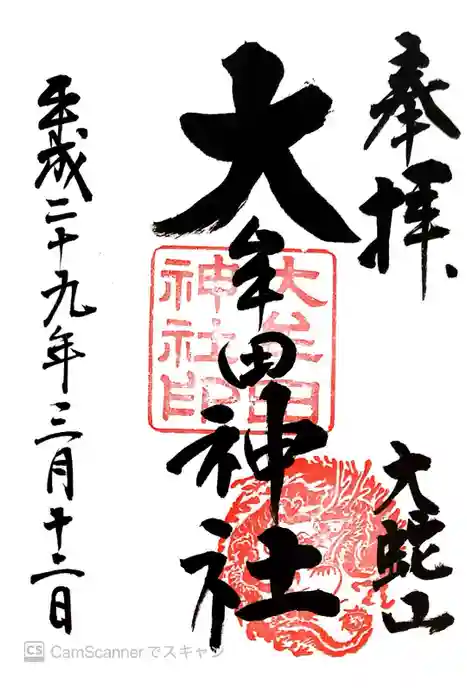 奉拝
大蛇山
大牟田神社
大牟田
神社印
平成二十九年三月十二日
CS CamScannerでスキャン